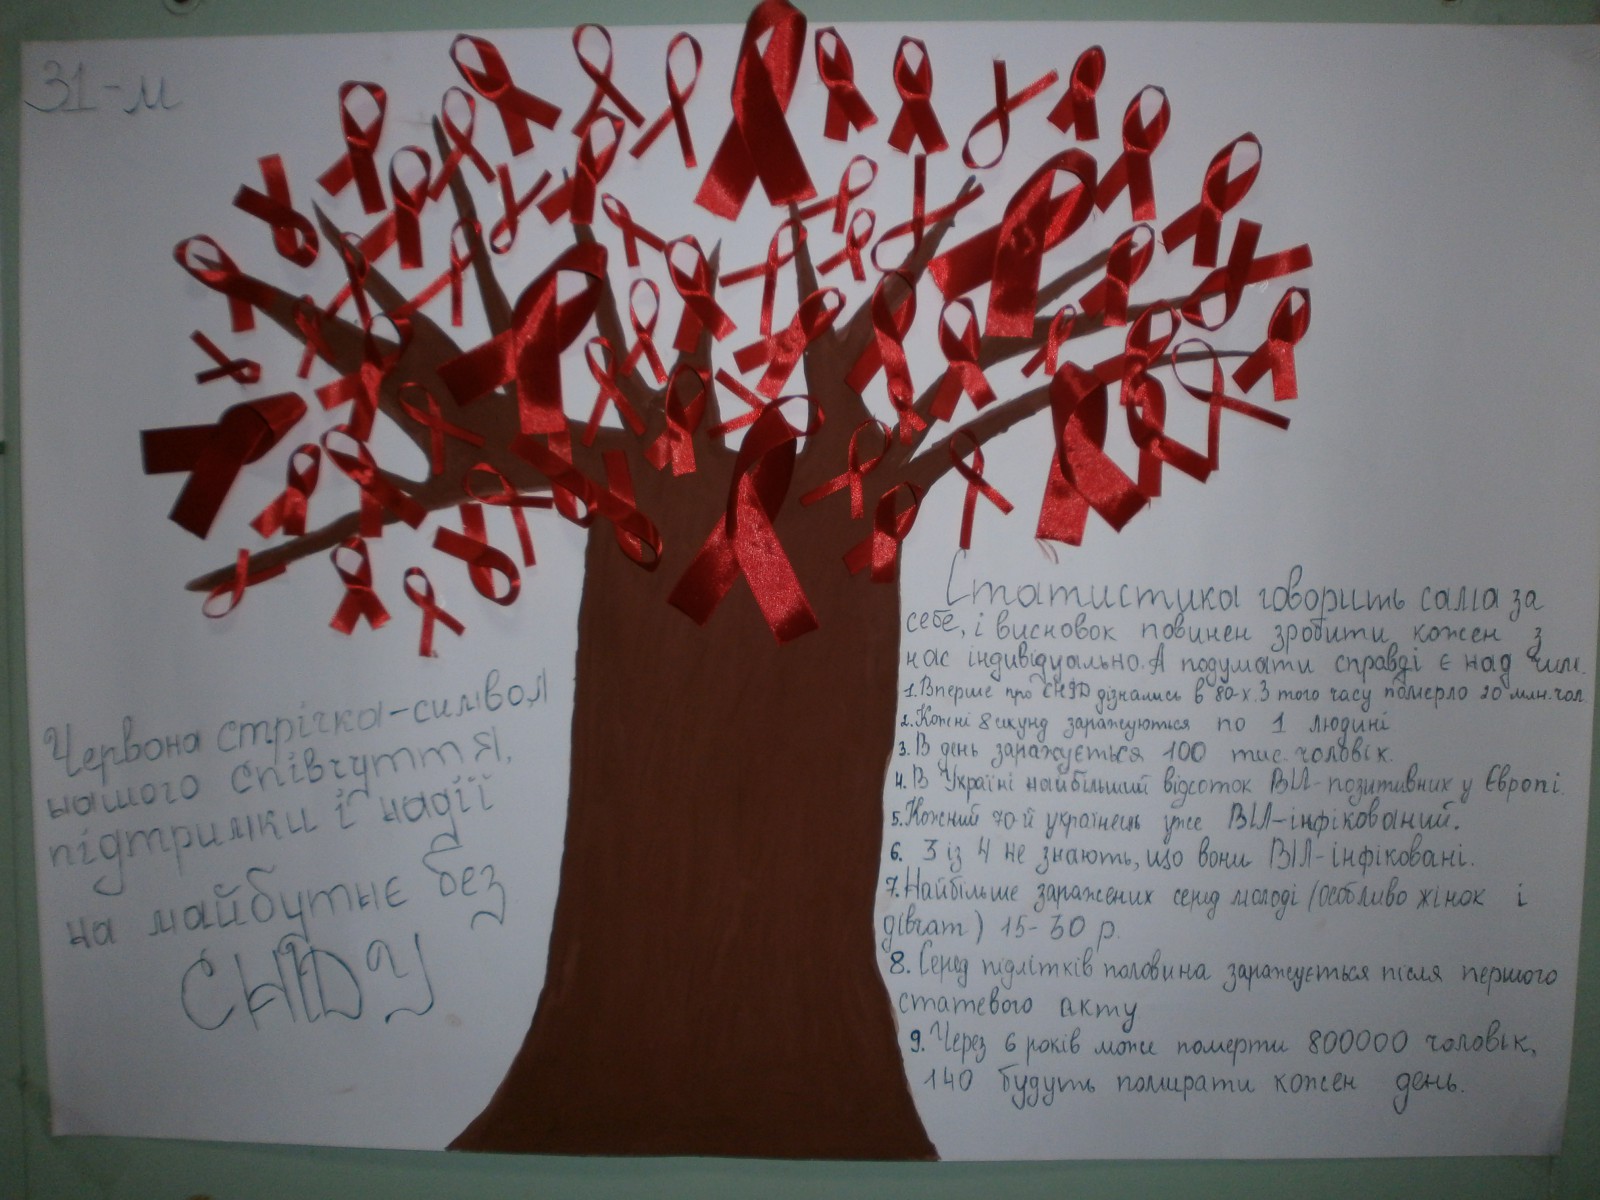 31-м
Червона стрічка-символ
нашого співчуття,
підтримки і надії
на майбутнє без
СНІДУ
Статистика говорить сама за
себе, і висновок повинен зробити кожен з
нас індивідуально. А подумати справді є над чим.
1. Вперше про СНІД дізнались в 80-х. З того часу померло 20 млн. чол.
2. Кожні 8 секунд заражуються по 1 людині
3. В день заражується 100 тис. чоловік.
4. В Україні найбільший відсоток ВІЛ-позитивних у Європі.
5. Кожний 70-й українець уже ВІЛ-інфікований.
6. 3 із 4 не знають, що вони ВІЛ-інфіковані.
7. Найбільше заражених серед молоді (особливо жінок і
дівчат) 15-30 р.
8. Серед підлітків половина заражується після першого
статевого акту
9. Через 6 років може померти 800000 чоловік,
140 будуть помирати кожен день.